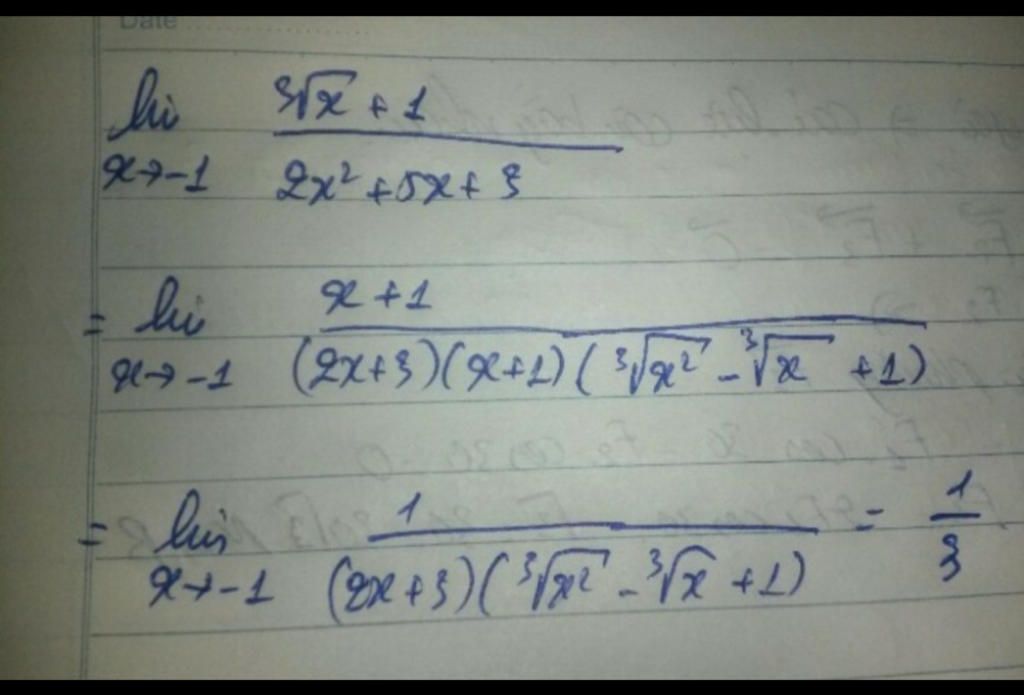 Date
lim ∛x + 1
x→-1 2x² + 5x + 3
= lim x + 1
x→-1 (2x+3)(x+1)(∛x² - ∛x + 1)
= lim 1 = 1/3
x→-1 (2x+3)(∛x² - ∛x + 1)